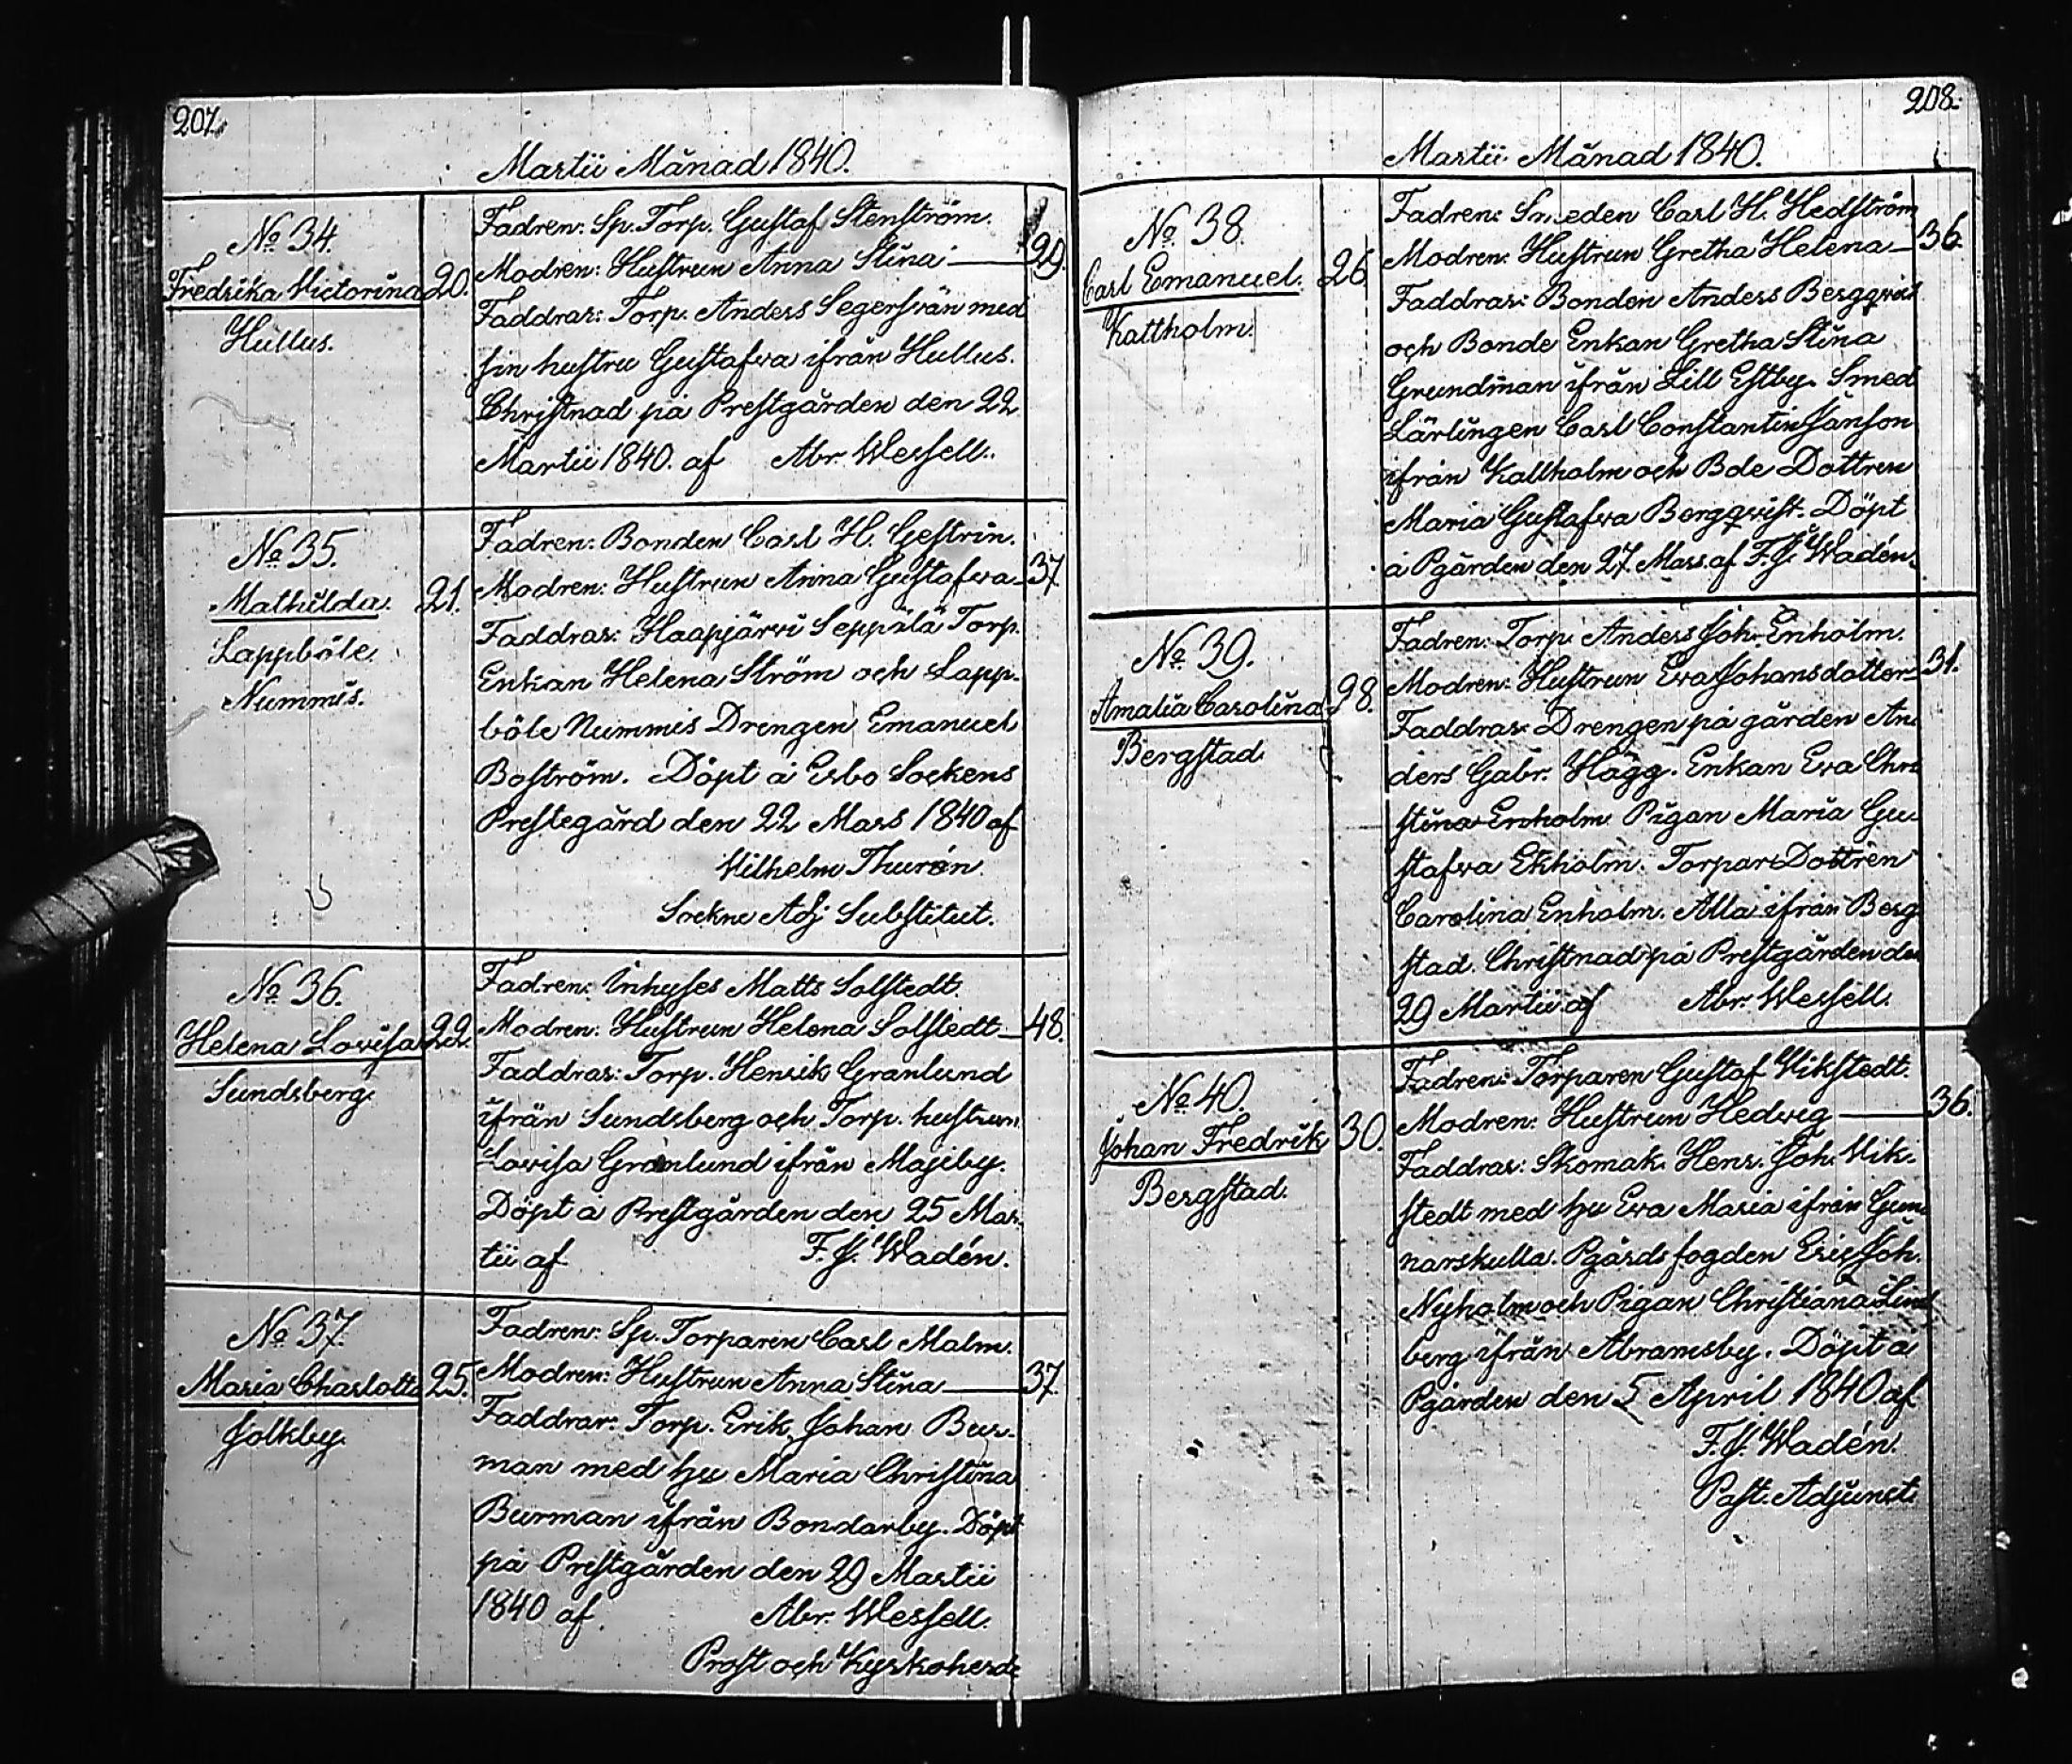 207.
Martii Månad 1840.
No 34.
Fredrika Victorina
Hullus.
20.
Fadren: Sp. Torp. Gustaf Stenström.
Modren: Hustrun Anna Stina — 29.
Faddrar: Torp. Anders Segersrån med
sin hustru Gustafva ifrån Hullus.
Christnad på Prestgården den 22
Martii 1840. af Abr. Wessell.
No 35.
Mathilda.
Lappböle.
Nummis.
21.
Fadren: Bonden Carl H. Gestrin.
Modren: Hustrun Anna Gustafva — 37
Faddrar: Haapjärvi Seppälä Torp.
Enkan Helena Ström och Lapp-
böle Nummis Drengen Emanuel
Boström. Döpt å Esbo Sockens
Prestegård den 22 Mars 1840 af
Vilhelm Thurén.
Sockne Adj. Substitut.
No 36.
Helena Lovisa
Sundsberg.
22.
Fadren: Inhyses Matts Solstedt.
Modren: Hustrun Helena Solstedt — 48.
Faddrar: Torp. Henrik Granlund
ifrån Sundsberg och Torp. hustrun
Lovisa Granlund ifrån Majiby.
Döpt å Prestgården den 25 Mar-
tii af F. J. Wadén.
No 37.
Maria Charlotta
Jolkby.
25.
Fadren: Sp. Torparen Carl Malm.
Modren: Hustrun Anna Stina — 37.
Faddrar: Torp. Erik Johan Bur-
man med hu Maria Christina
Burman ifrån Bondarby. Döpt
på Prestgården den 29 Martii
1840 af Abr. Wessell.
Prost och Kyrkoherde
208.
Martii Månad 1840.
No 38.
Carl Emanuel.
Kattholm.
26
Fadren: Smeden Carl H. Hedström
Modren: Hustrun Gretha Helena — 36.
Faddrar: Bonden Anders Bergqvist
och Bonde Enkan Gretha Stina
Grundman ifrån Lill Estby. Smed
Lärlingen Carl Constantin Janson
ifrån Kattholm och Bde Dottren
Maria Gustafva Bergqvist. Döpt
å Pgården den 27 Mars af F. J. Wadén.
No 39.
Amalia Carolina
Bergstad
28.
Fadren: Torp. Anders Joh. Enholm.
Modren: Hustrun Eva Johansdotter — 31.
Faddrar: Drengen på gården An-
ders Gabr. Hägg. Enkan Eva Chri
stina Enholm. Pigan Maria Gu-
stafva Ekholm. Torpare Dottren
Carolina Enholm. Alla ifrån Berg
stad. Christnad på Prestgården den
29 Martii af Abr. Wessell.
No 40.
Johan Fredrik
Bergstad.
30.
Fadren: Torparen Gustaf Vikstedt.
Modren: Hustrun Hedvig — 36.
Faddrar: Skomak. Henr. Joh. Vik-
stedt med hu Eva Maria ifrån Gun
narskulla. Pgårds fogden Eric Joh.
Nyholm och Pigan Christiana Lind
berg ifrån Abramsby. Döpt å
Pgården den 5 April 1840 af
F. J. Wadén.
Past. Adjunct.